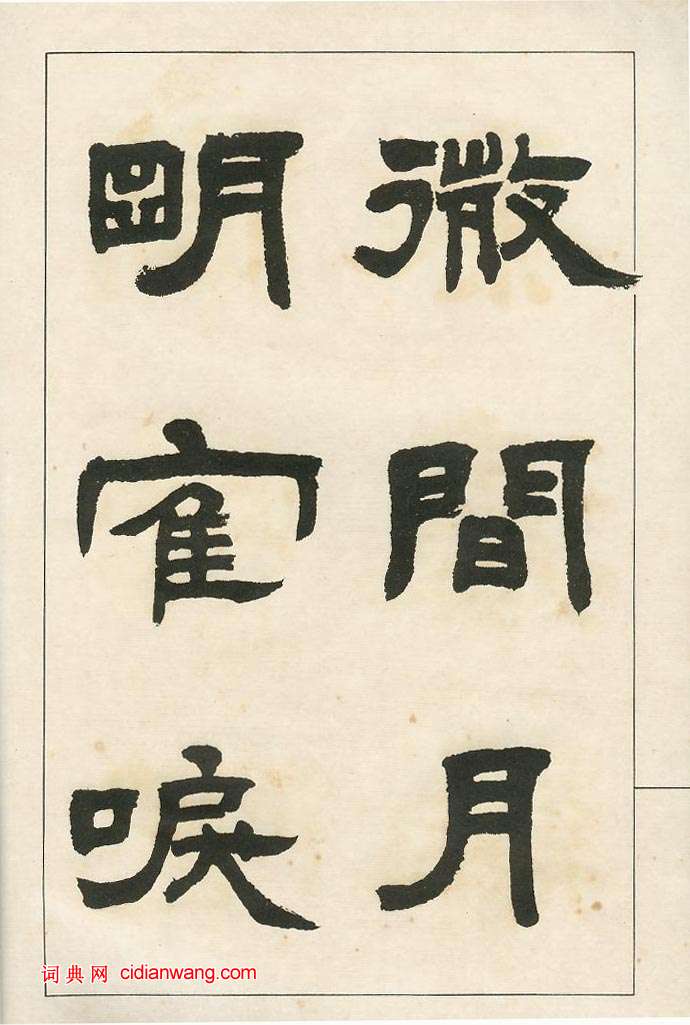 微間月
明隺唳
词典网 cidianwang.com